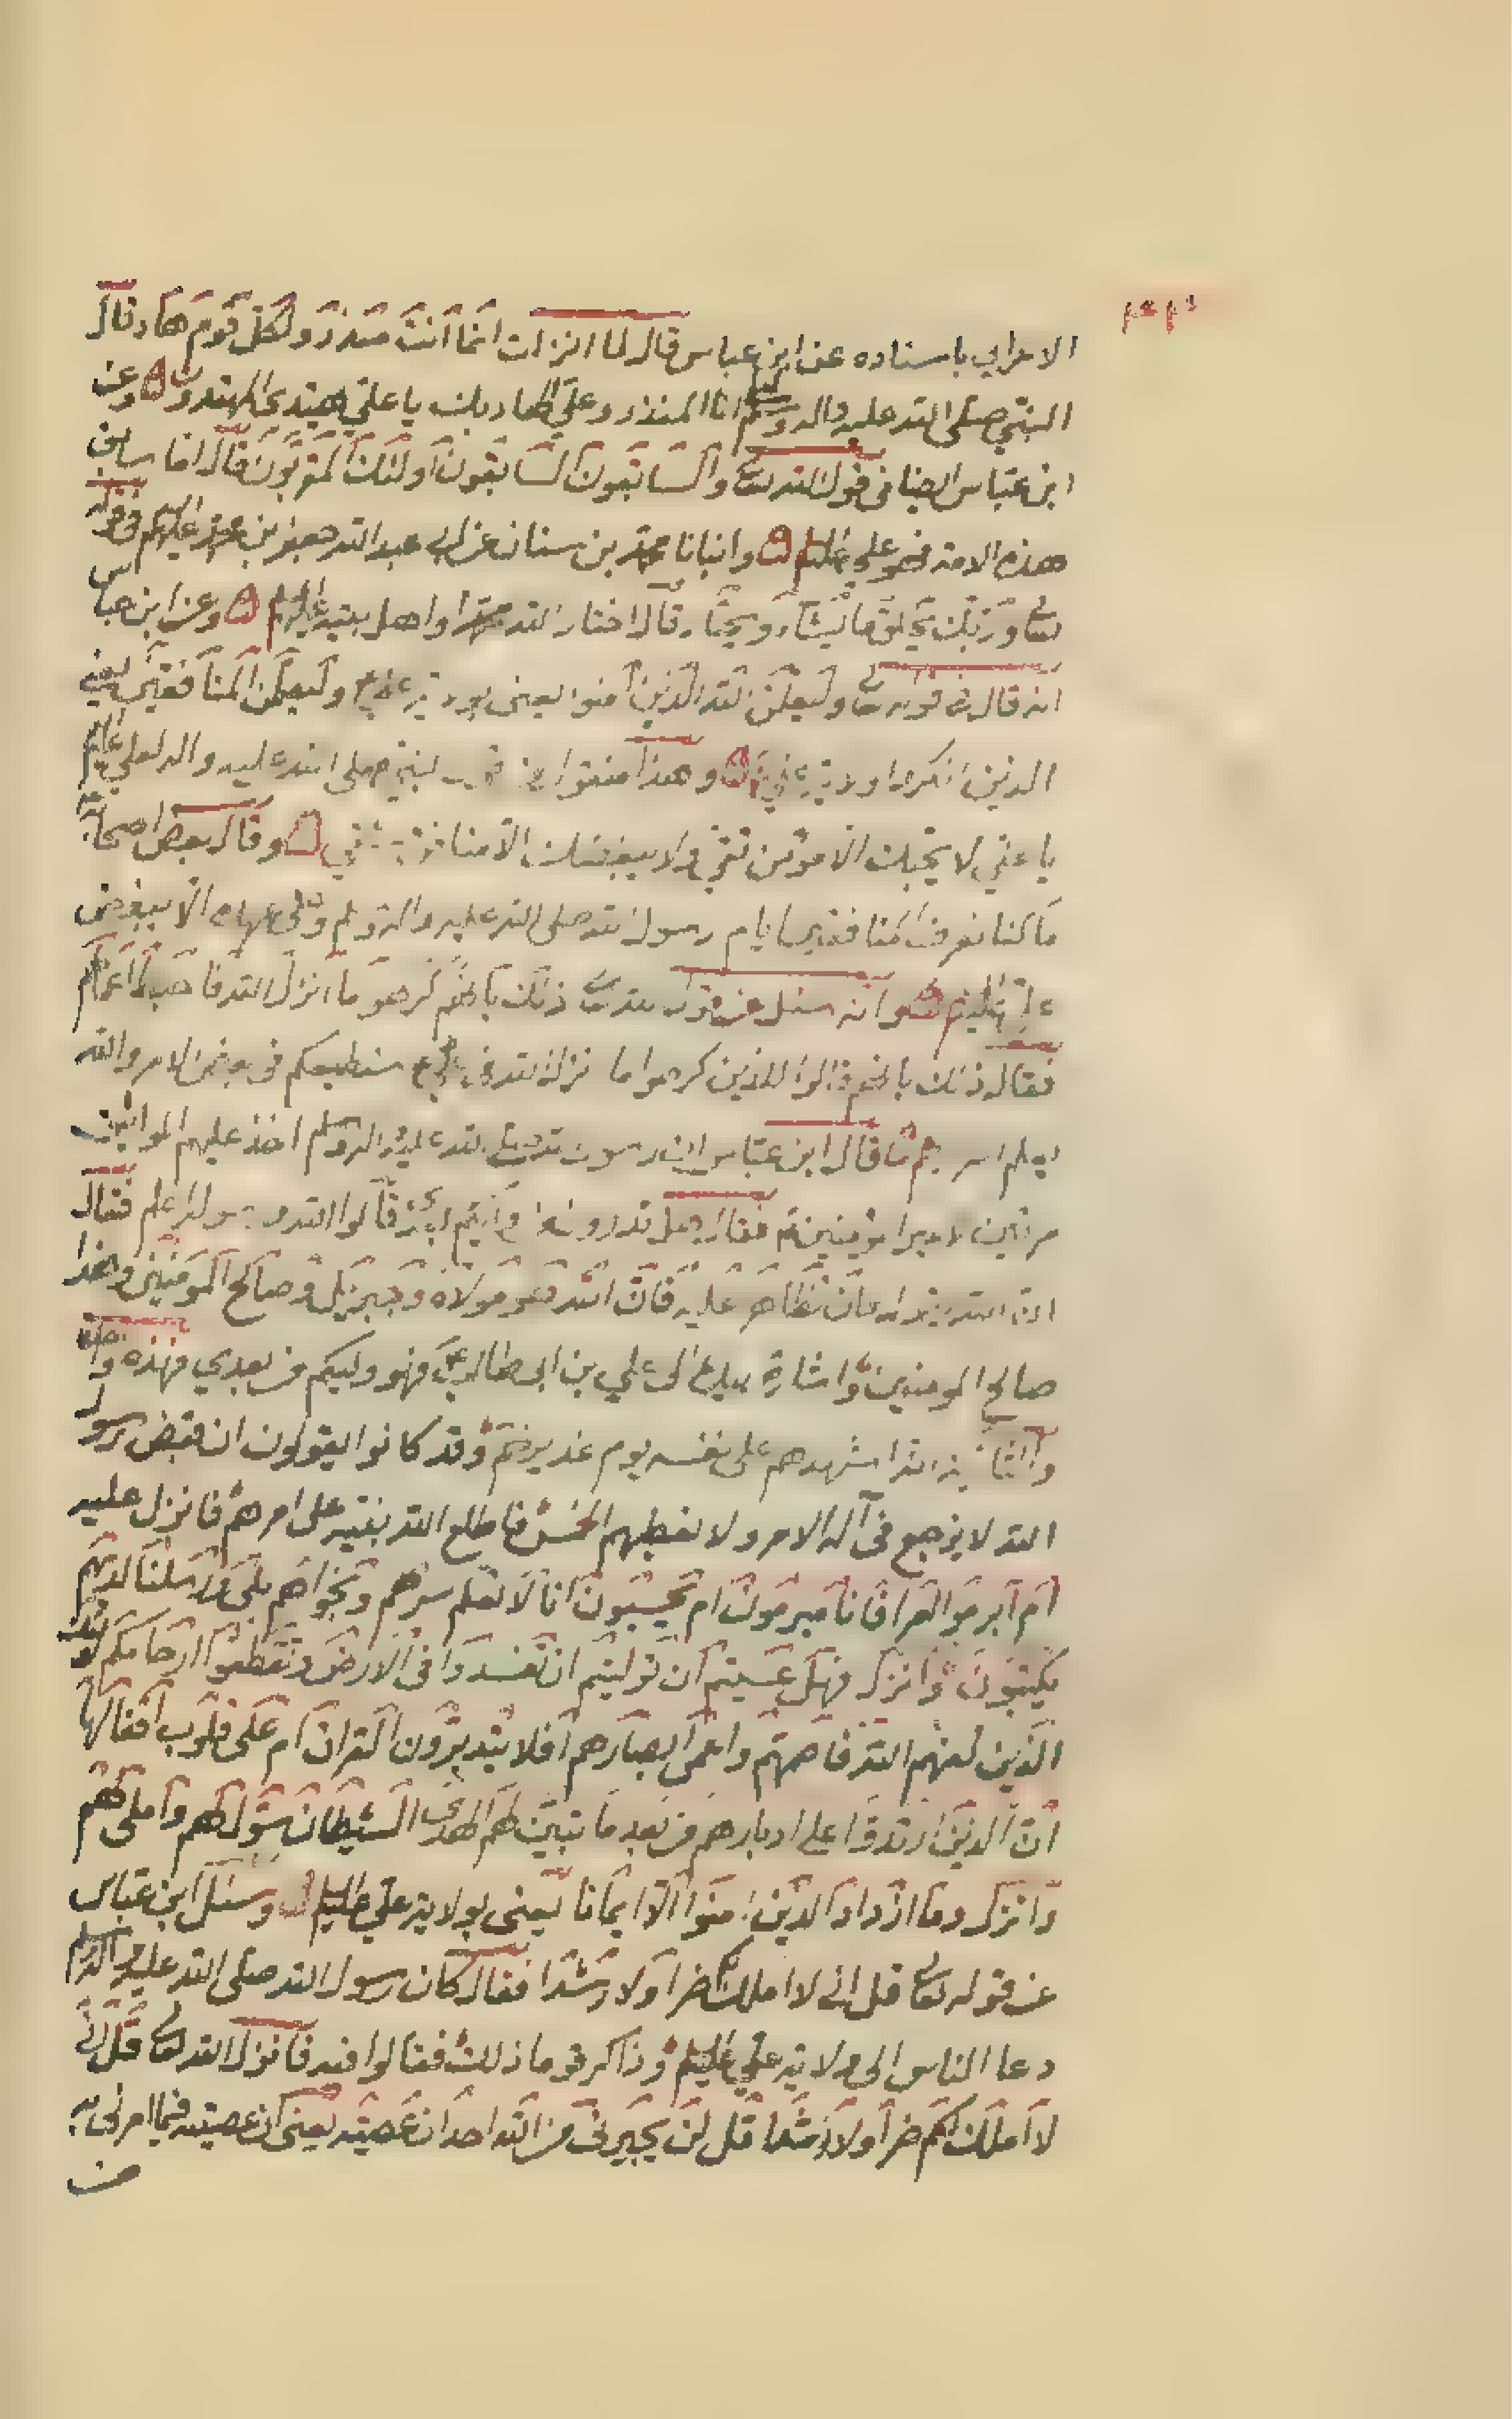 الاعرابي باسناده عن ابن عباس قال لما انزلت انما انت منذر ولكل قوم هاد قال
النبي صلى الله عليه واله وسلم انا المنذر وعلي الهاد بك يا علي يهتدي المهتدون ه وعن
ابن عباس ايضا في قول الله تعالى والسابقون السابقون اولئك المقربون قال انا سابق
هذه الامة فهو علي عليه السلم ه وانبانا محمد بن سنان عن ابي عبد الله جعفر بن محمد عليهم في قوله
تعالى وربك يخلق ما يشاء ويختار قال اختار الله محمدا واهل بيته عليهم ه وعن ابن عباس
انه قال في قوله تعالى وليعلمن الله الذين امنوا يعني بولاية علي ع وليعلمن المنافقين يعني
الذين انكروا ولاية علي ع ه وهذا منقول عن النبي صلى الله عليه واله لعلي عليه
يا علي لا يحبك الا مومن تقي ولا يبغضك الا منافق شقي ه وقال بعض اصحابه
ما كنا نعرف المنافقين ايام رسول الله صلى الله عليه واله وسلم الا ببغض
علي عليه السلم ه وانه سئل عن قول الله تعالى ذلك بانهم كرهوا ما انزل الله فاحبط اعمالهم
فقال ذلك بانهم قالوا للذين كرهوا ما نزل الله في علي ع سنطيعكم في بعض الامر والله
يعلم اسرارهم قال ابن عباس ان رسول الله صلى الله عليه واله وسلم اخذ عليهم المواثيق
مرتين لامير المومنين فقال هل تدرون من وليكم بعدي قالوا الله ورسوله اعلم فقال
ان الله يقول فان تظاهرا عليه فان الله هو مولاه وجبريل وصالح المومنين وهذا
صالح المومنين واشار بيده الى علي بن ابي طالب ع فهو وليكم من بعدي فهذه واحدة
والثانية انه اشهدهم على نفسه يوم غدير خم وقد كانوا يقولون ان قبض رسول
الله لا يرجع في آله الامر ولا نعطيهم الخمس فاطلع الله نبيه على امرهم فانزل عليه
ام ابرموا امرا فانا مبرمون ام يحسبون انا لا نعلم سرهم ونجواهم بلى ورسلنا لديهم
يكتبون وانزل فهل عسيتم ان توليتم ان تفسدوا في الارض وتقطعوا ارحامكم اولئك
الذين لعنهم الله فاصمهم واعمى ابصارهم افلا يتدبرون القران ام على قلوب اقفالها
ان الذين ارتدوا على ادبارهم من بعد ما تبين لهم الهدى الشيطان سول لهم واملى لهم
وانزل وما ازداد الذين امنوا الا ايمانا يعني بولاية علي عليه السلم ه وسئل ابن عباس
عن قوله تعالى قل اني لا املك لكم ضرا ولا رشدا فقال كان رسول الله صلى الله عليه واله وسلم
دعا الناس الى ولاية علي عليه السلم وذاكر قوما ذلك فقالوا فيه فانزل الله تعالى قل اني
لا املك لكم ضرا ولا رشدا قل لن يجيرني من الله احد ان عصيته يعني ان عصيته فيما امرني به
من